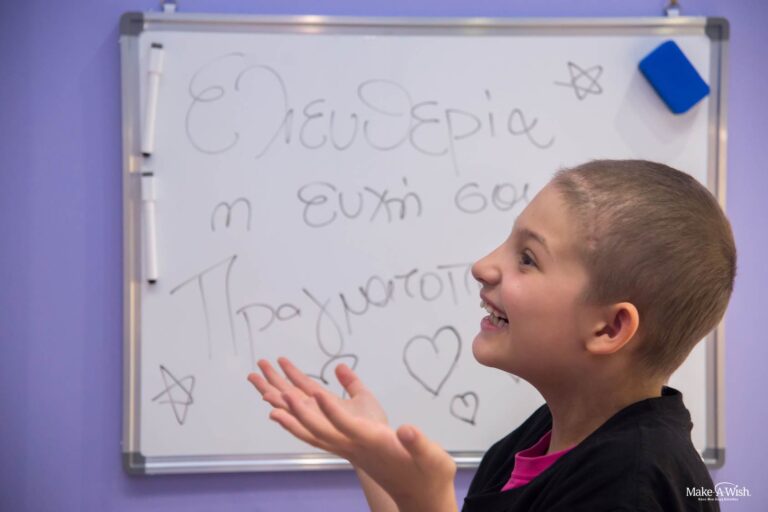 Ελευθερία
η ευχή σου
Πραγματοπ
MAKE-A-WISH.